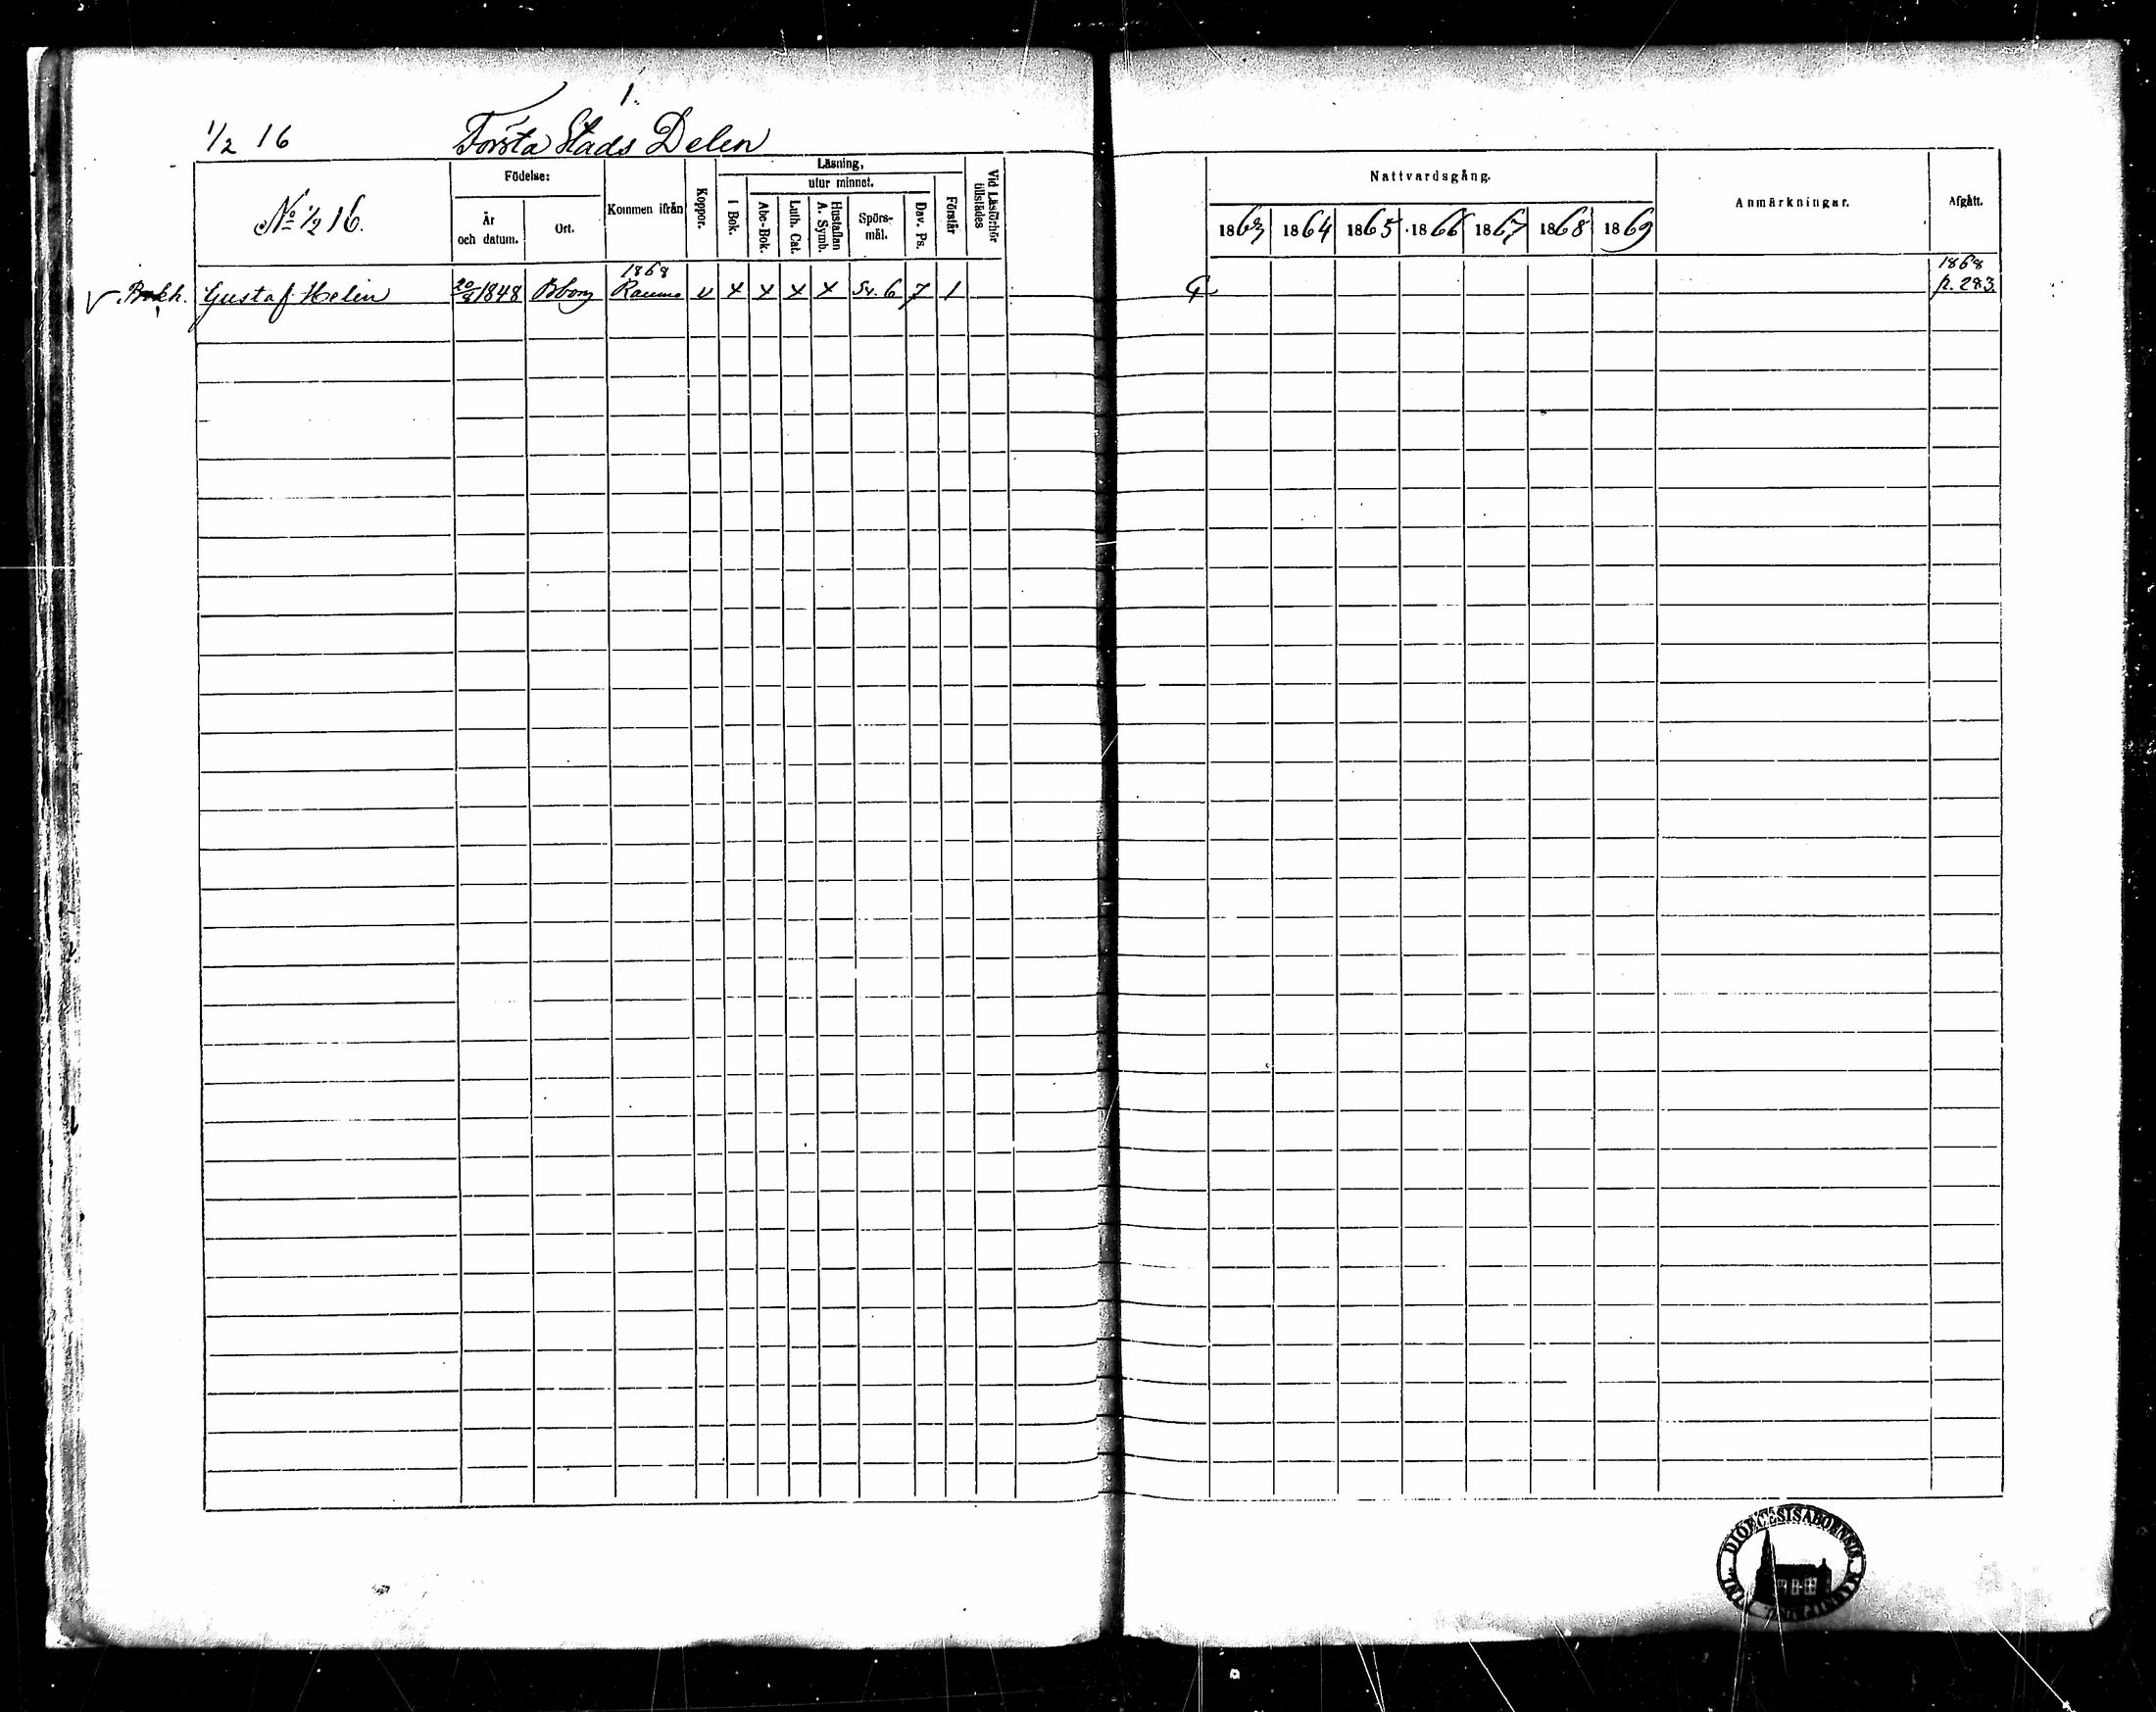 1.
1/2 16 Första Stads Delen
No 1/2 16.
Födelse:
År och datum.
Ort.
Kommen ifrån
Koppor.
Läsning,
utur minnet.
I Bok.
Abc-Bok.
Luth. Cat.
Hustaflan A. Symb.
Spörs-mål.
Dav. Ps.
Förstår
Vid Läsförhör tillstädes
Nattvardsgång.
1863 1864 1865 1866 1867 1868 1869
Anmärkningar.
Afgått.
1868
1868
v Bokh. Gustaf Helin 20/8 1848 Bborg Raumo v x x x x Sv. 6 7 1 G p. 283.
DIOECESIS ABOENSIS